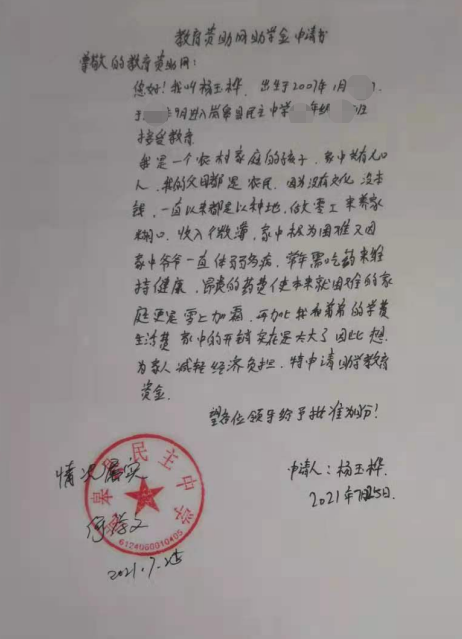 教育资助网助学金申请书
尊敬的教育资助网：
您好！我叫杨玉桦，出生于2007年1月
于 年9月进入岚皋县民主中学 年级 班
接受教育
我是一个农村家庭的孩子，家中共有 口
人，我的父母都是农民，因为没有文化 没本
钱，一直以来都是以种地，做零工来养家
糊口，收入个微薄，家中极为困难又因
家中爷爷一直体弱多病，常年需吃药来维
持健康，昂贵的药费使本来就困难的家
庭更是雪上加霜，再加上我和 的学费
生活费 家中的开销实在是太大了 因此想
为家人减轻经济负担，特申请助学教育
资金.
望各位领导给予批准为盼！
情况属实
皋县民主中学
6124000010405
2021.7.25
申请人：杨玉桦.
2021年7月25日.